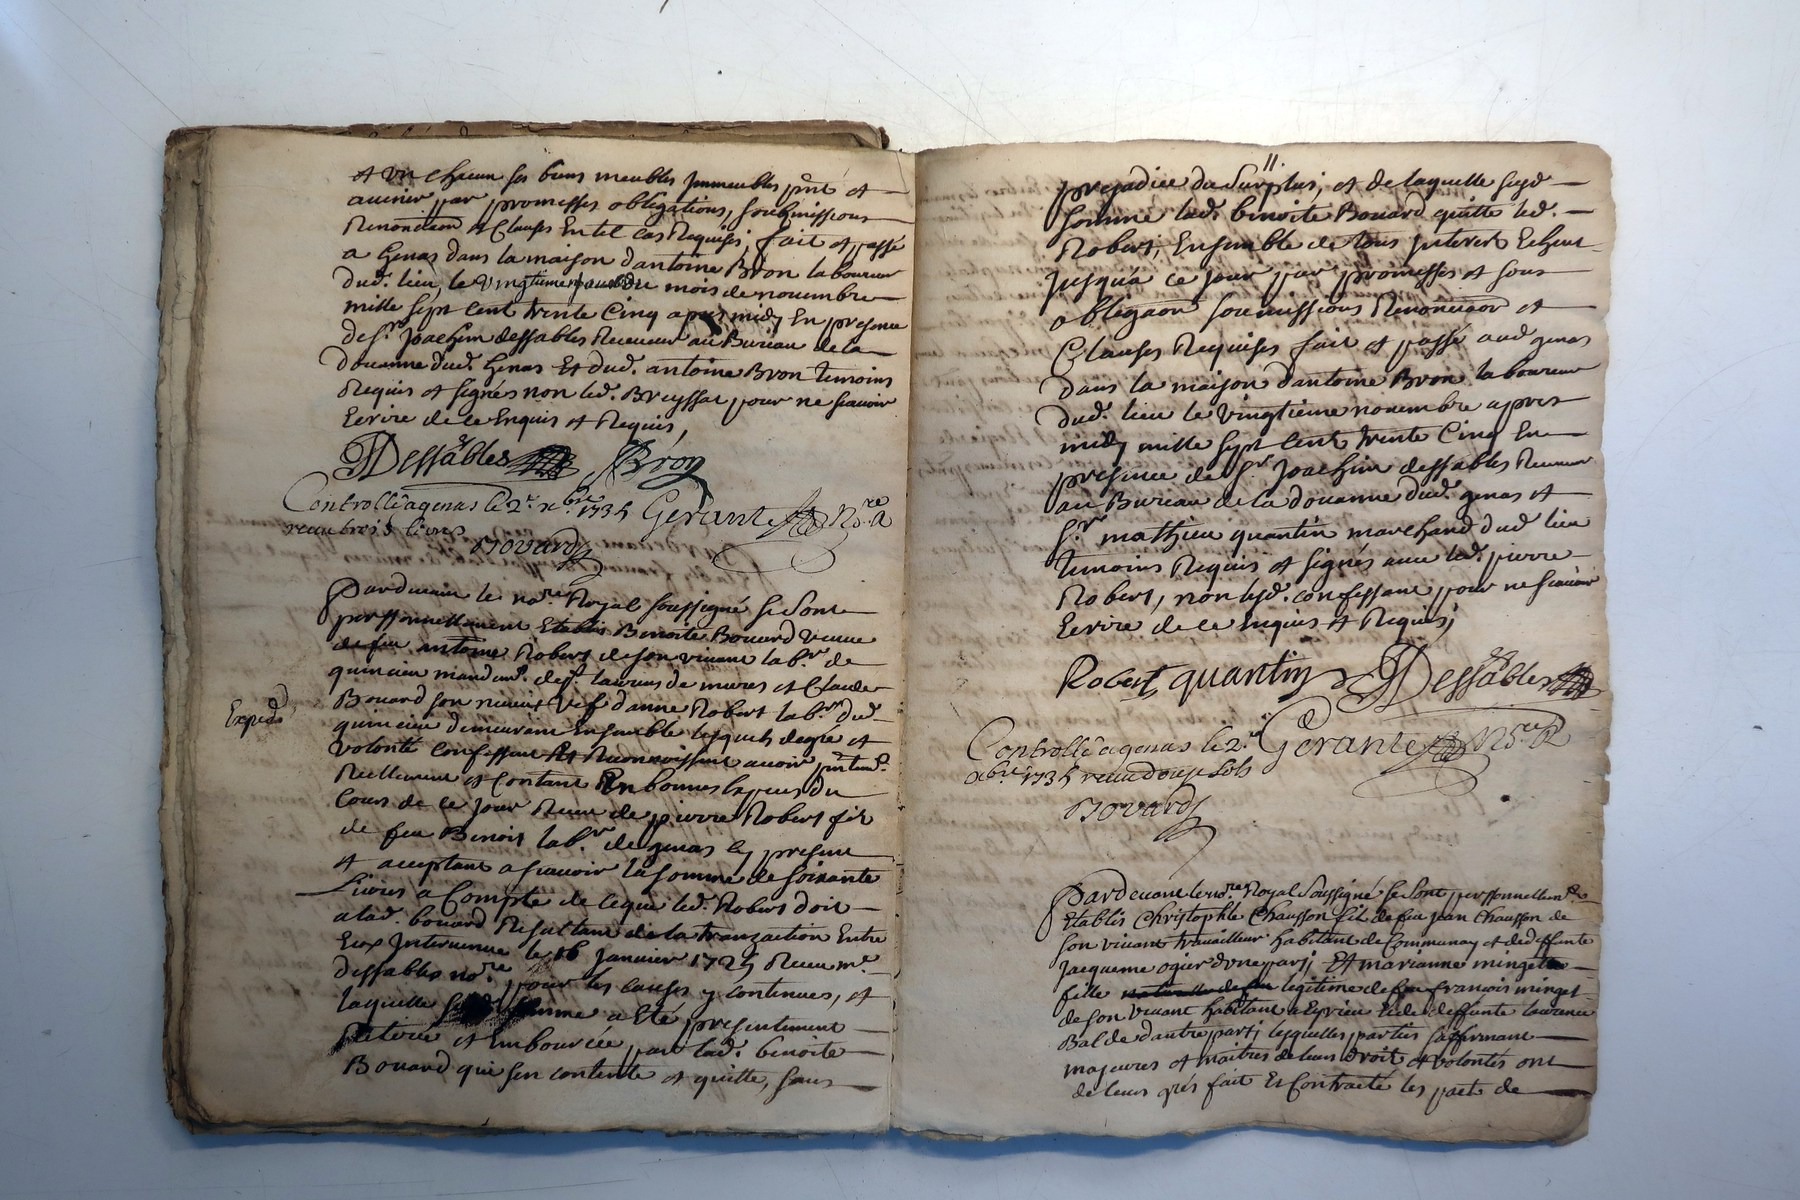 et un chacun ses biens meubles jmmeubles pnt et
auenir par promesses obligations, soubmissions
Renonciaon et Clauses En tel cas Requises, fait et passé
a genas dans la maison dantoine Bron laboureur
dud. lieu, le vingtieme jour du mois de nouembre
mille sept cent trente Cinq apres midy En presence
de sr. Joachim dessables Receueur au Bureau de la
douanne dud. genas Et dud. antoine Bron temoins
Requis et signés non led. Breyssat pour ne scauoir
Ecrire de ce Enquis et Requis,
JDessables Bron
Controllé a genas le 2e. xbre 1735 Gerante Nore R
receu trois liures
Bovard
Pardeuant le nore Royal soussigné se sont
personnellement Etablis Benoite Bouard veuue
de feu antoine Robert de son viuant labr. de
quincieu mandemt. de st. laurens de mures et Claude
Bouard son neueu vef d'anne Robert labr. dud.
Expedié
quincieu demeurant Ensemble lesquels de gré et
volonté confessent et Reconnoissent auoir pntemt.
Reellement et Contant En bonnes Especes du
Cours de ce jour Receu de pierre Robert fils
de feu Benoit labr. de genas Cy present
et aceptant a scauoir la somme de soixante
Liures a Compte de ce que led. Robert doit
a lad. bouard Resultant de la transaction Entre
Eux Interuenue le 16 Januier 1725 Receu me.
dessables nore pour les causes y contenues, et
laquelle somme a Eté presentement
Retirée et Emboursée par lad. benoite
Bouard qui sen contente et quitte, sans
11.
prejudice du surplus, et de laquelle susd
somme lad. benoite Bouard quitte led.
Robert, Ensemble de tous jnterets Echeus
jusqu'a ce jour par promesses et sous
obligaon soumissions Renonciaon et
Clauses Requises fait et passé aud genas
dans la maison dantoine Bron laboureur
dud. lieu le vingtieme nouembre apres
midy mille sept cent trente Cinq En
presence de sr. Joachim dessables Receueur
au Bureau de la douanne dud. genas et
sr. mathieu quantin marchand dud lieu
temoins Requis et signés auec led. pierre
Robert, non lesd. confessans pour ne scauoir
Ecrire de ce Enquis et Requis,
Robert quantin JDessables
Controllé a genas le 2e. Gerante Nore R
xbre 1735 receu douze sols
Bovard
Pardeuant le nore. Royal soussigné se sont personnellemt.
Etablis Christophle Chausson fils de feu jean Chausson de
son viuant trauailleur habitant de Communay et de deffunte
jacqueme ogier d'une part, Et marianne minget
fille naturelle de feu legitime de feu francois minget
de son viuant habitant a Eyrieu et de deffunte laurence
Balde d'autre part, lesquelles parties s'affirmant
majeures et maitres de leurs droits et volontés ont
de leurs grés fait Et Contracté les pacts de